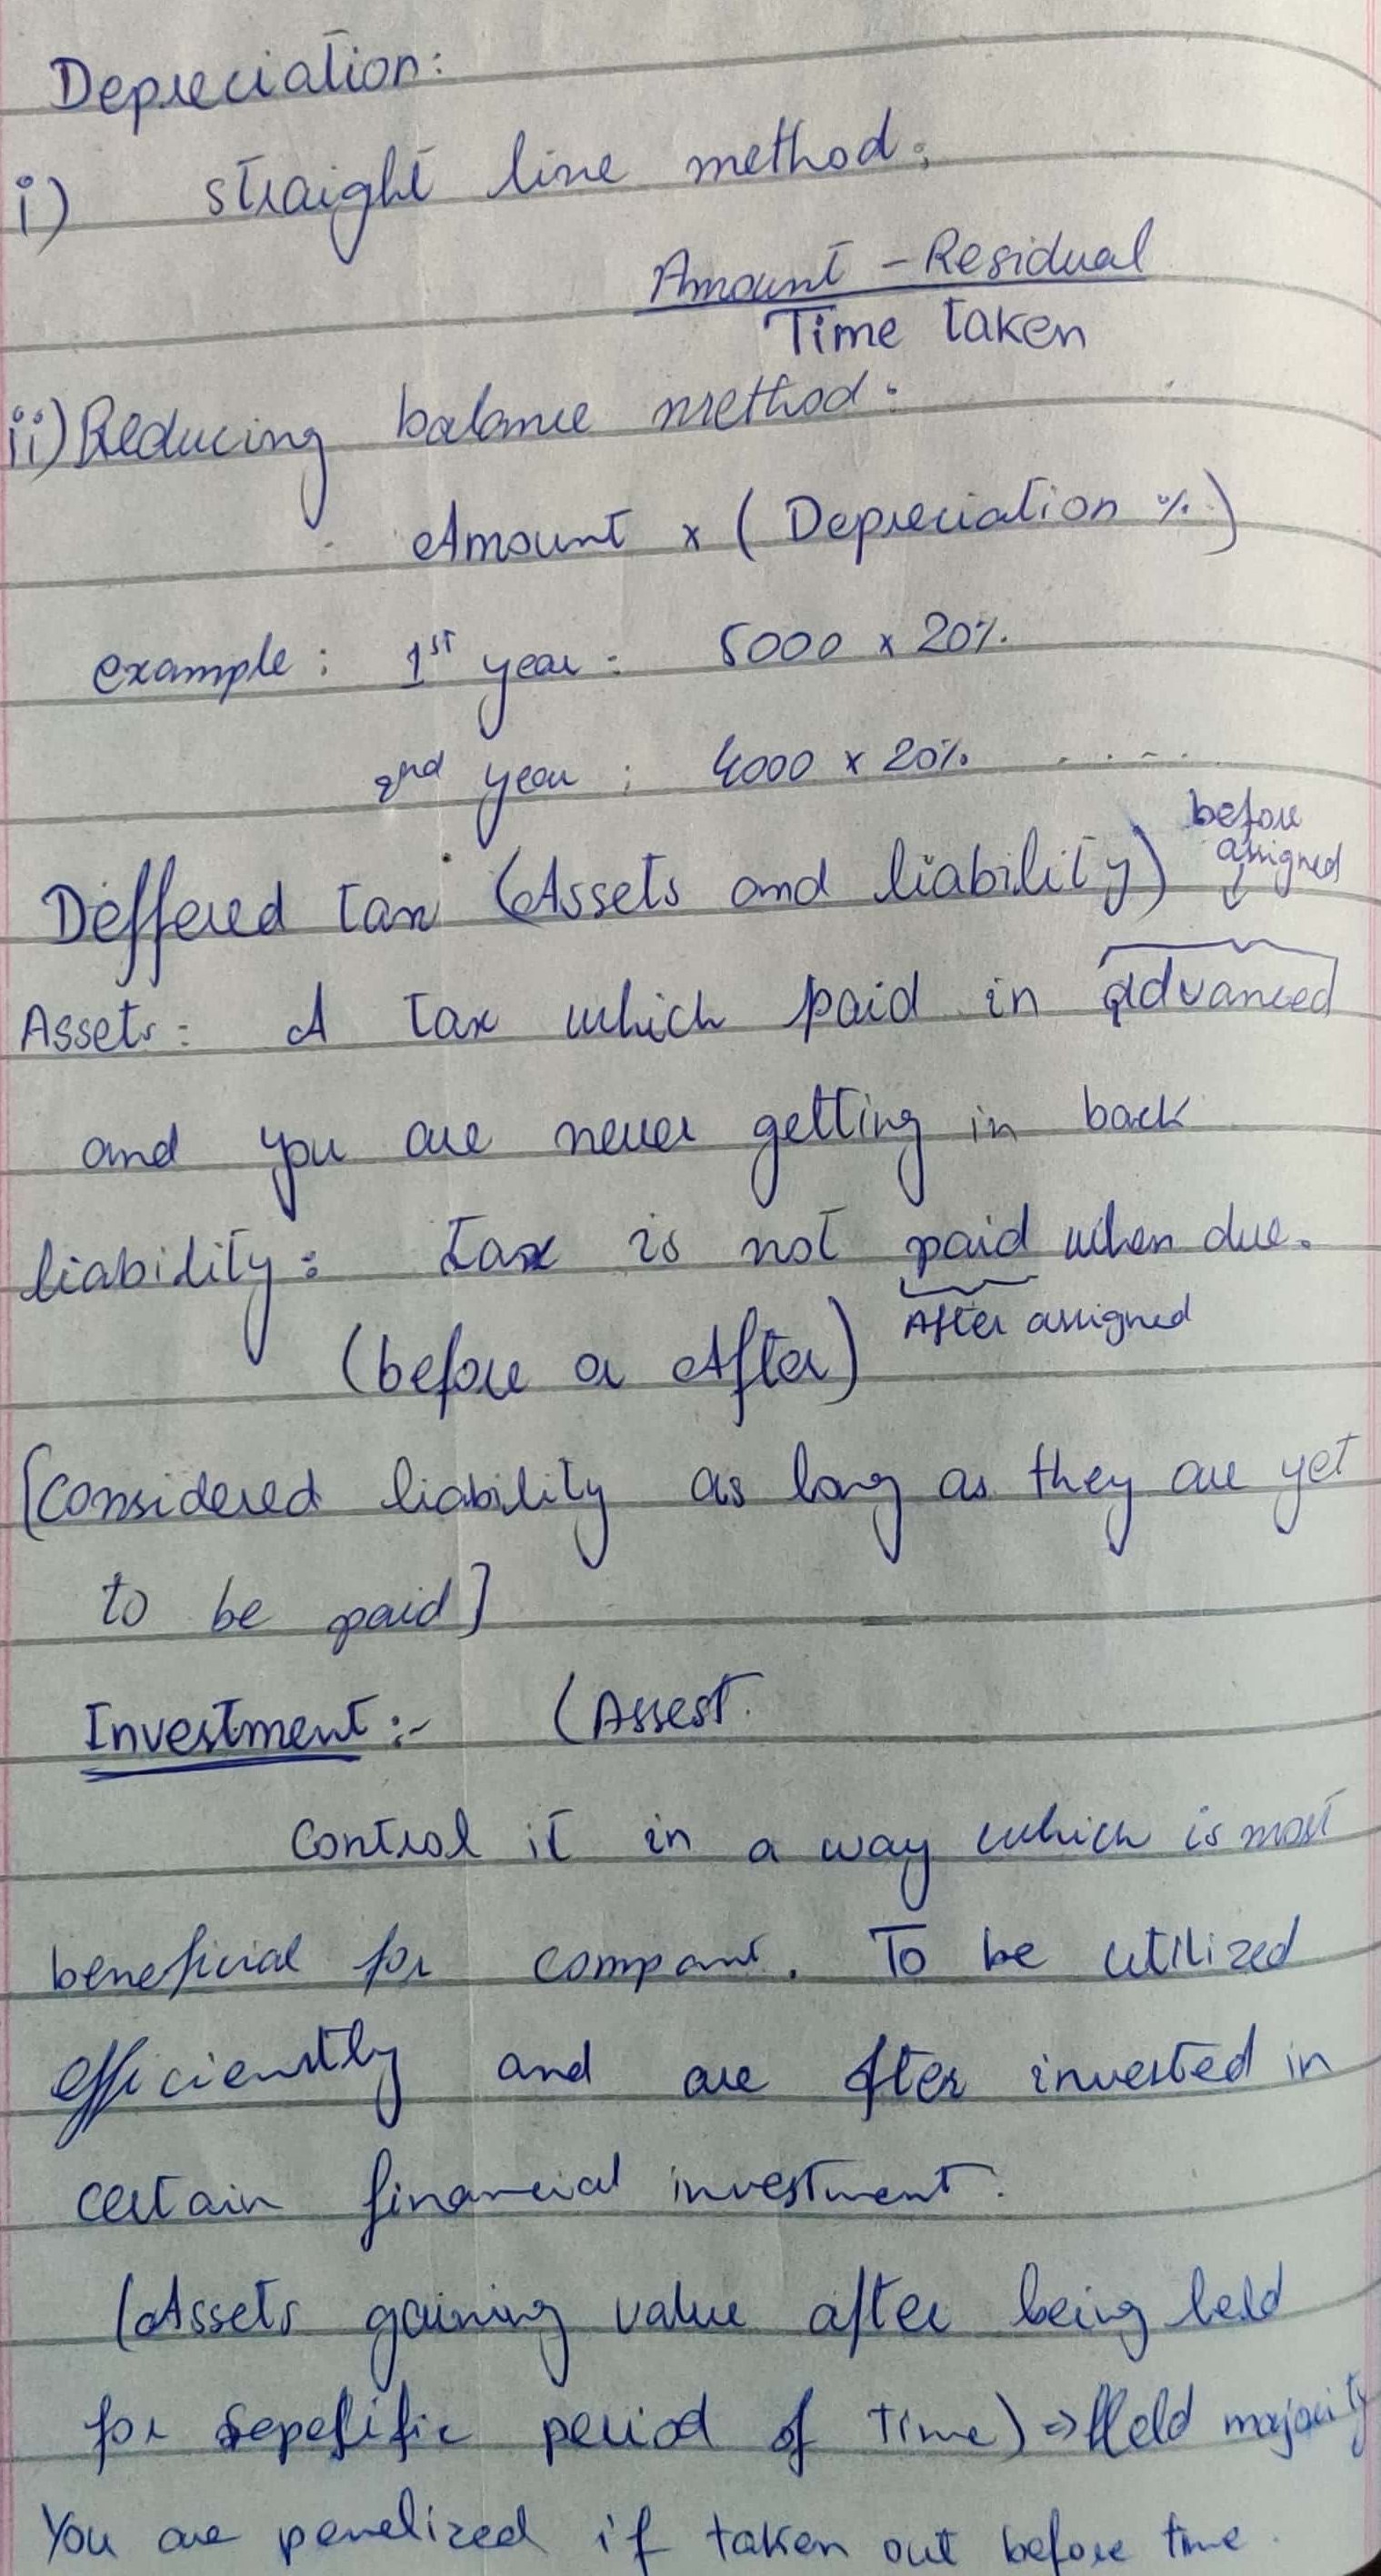 Depreciation:
i) straight line method:
Amount - Residual
Time taken
ii) Reducing balance method:
Amount x (Depreciation %)
example: 1st year: 5000 x 20%
2nd year: 4000 x 20% .....
before
assigned
Deffered tax (Assets and liability)
Assets: A tax which paid in advanced
and you are never getting in back
liability: tax is not paid when due.
After assigned
(before or After)
[Considered liability as long as they are yet
to be paid]
Investment:- (Assest.
Control it in a way which is most
beneficial for company. To be utilized
efficiently and are after invested in
certain financial investment.
(Assets gaining value after being held
for sepefific period of time) => Held majority
You are penelized if taken out before time.